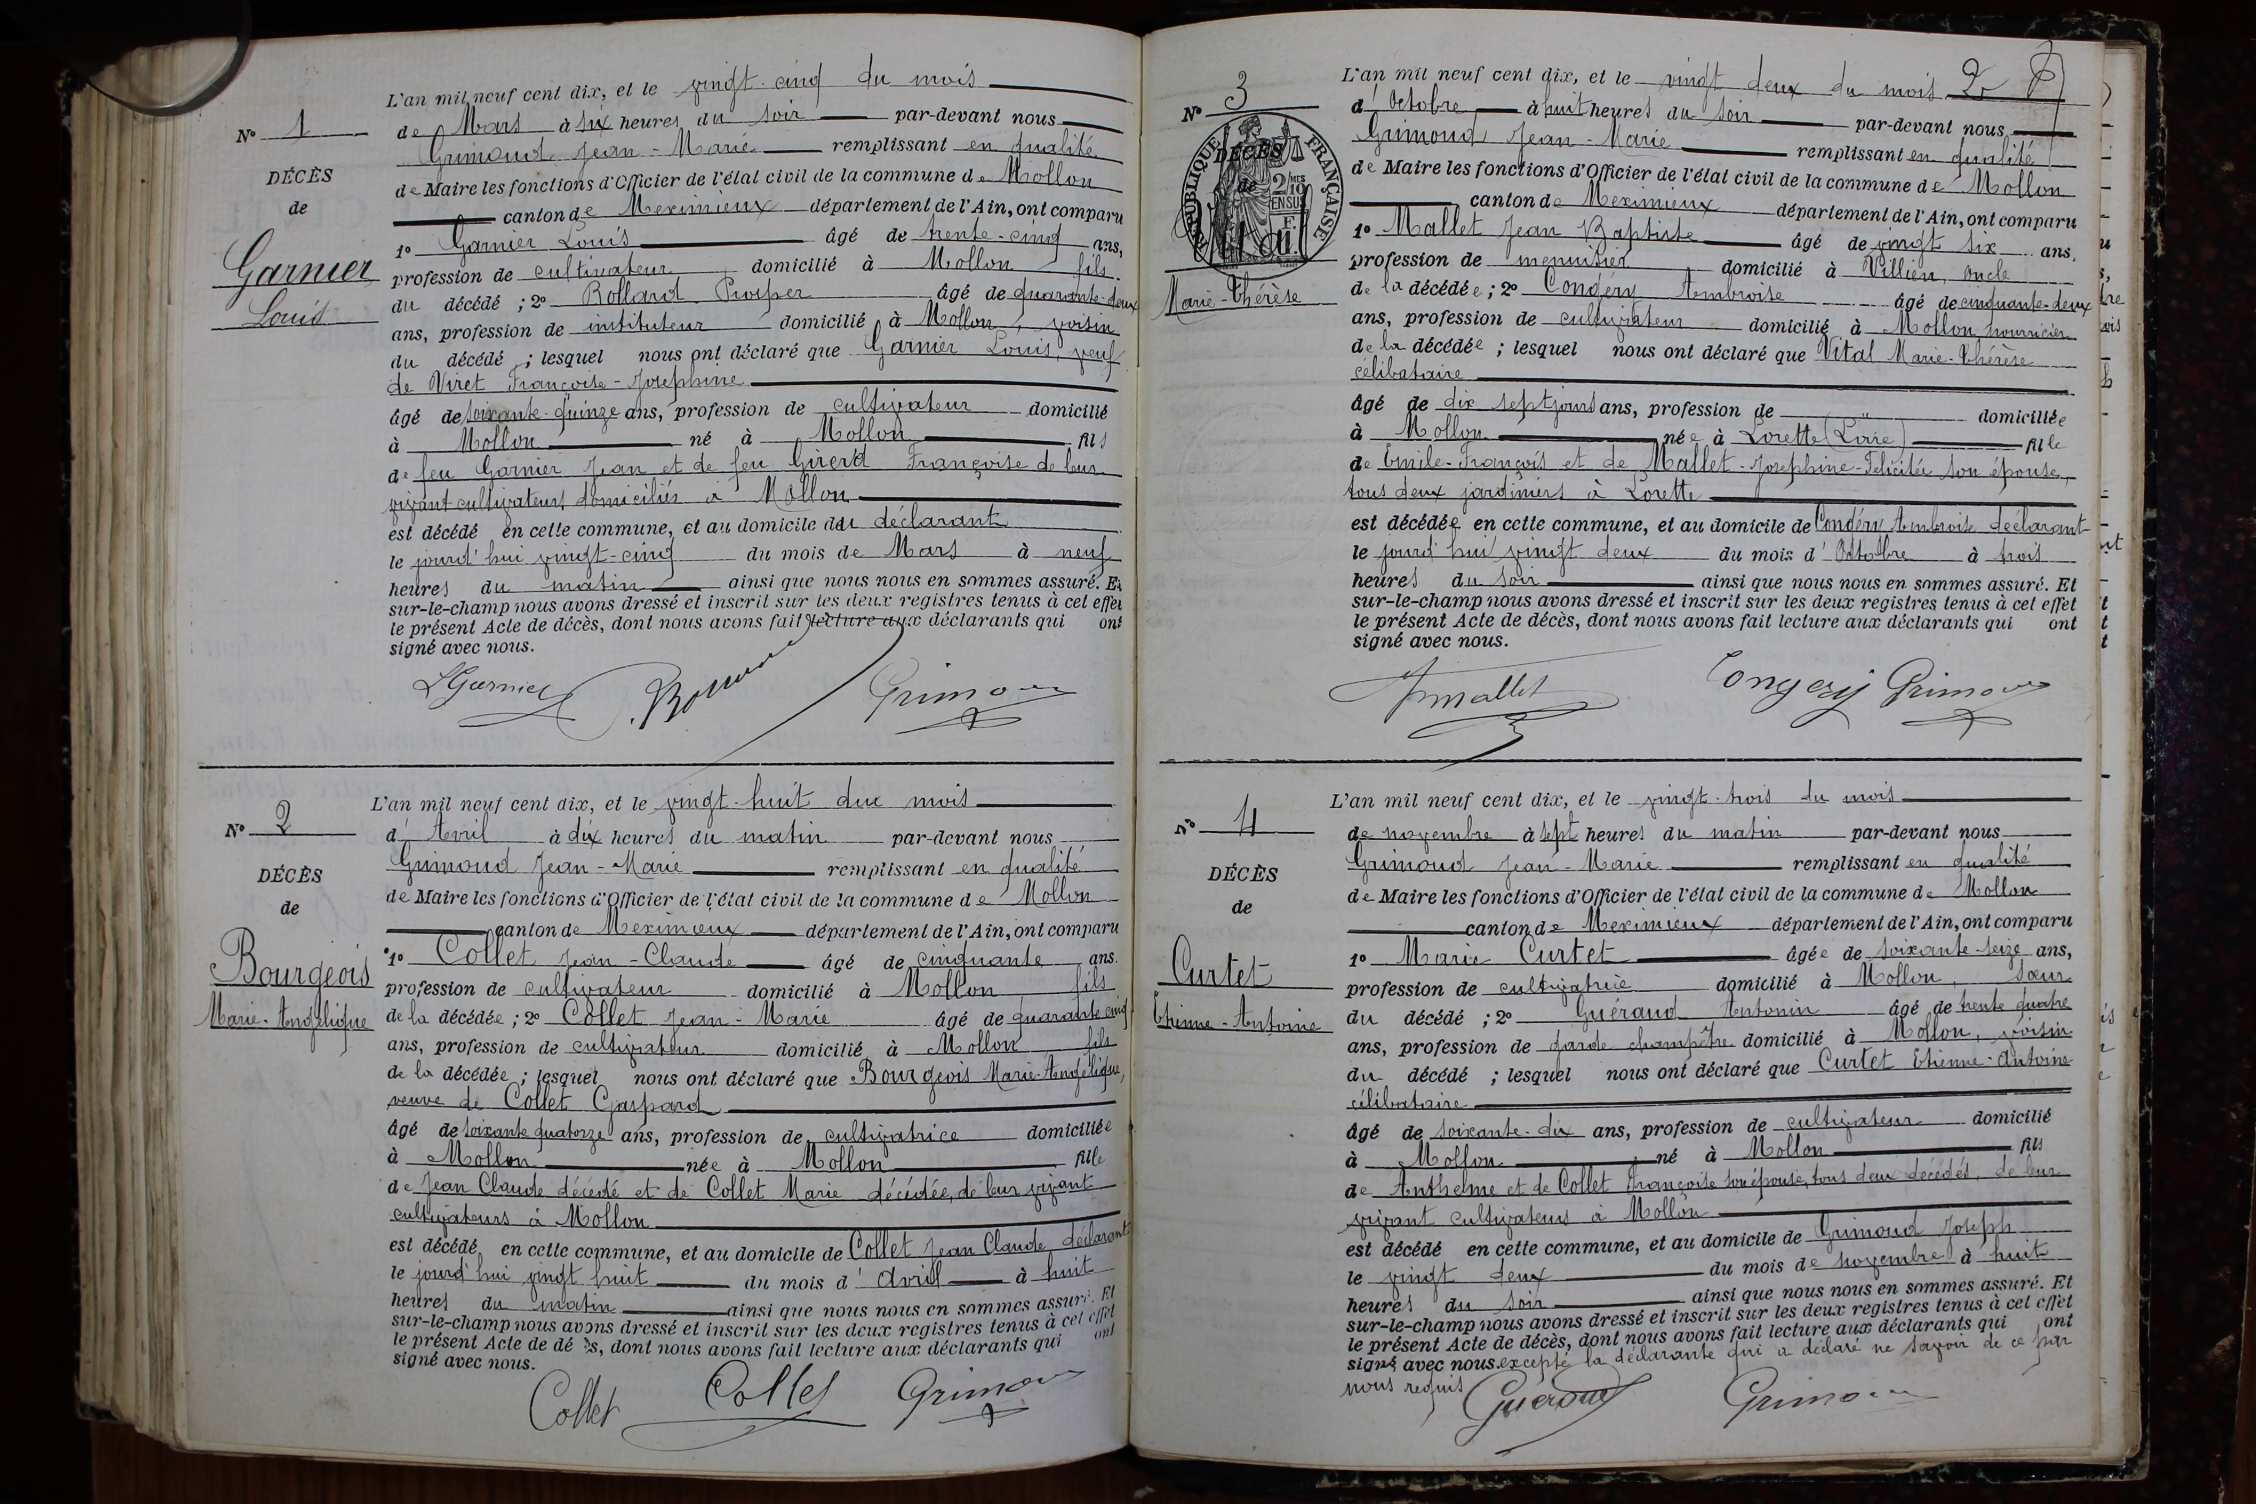 N° 1
DÉCÈS
de
Garnier
Louis
L'an mil neuf cent dix, et le vingt-cinq du mois
de Mars à six heures du soir par-devant nous
Grimoud Jean-Marie remplissant en qualité
de Maire les fonctions d'Officier de l'état civil de la commune de Mollon
canton de Meximieux département de l'Ain, ont comparu
1° Garnier Louis âgé de trente-cinq ans,
profession de cultivateur domicilié à Mollon fils
du décédé ; 2° Rollard Prosper âgé de quarante-deux
ans, profession de instituteur domicilié à Mollon, voisin
du décédé ; lesquel nous ont déclaré que Garnier Louis, veuf
de Viret Françoise-Josephine
âgé de soixante-quinze ans, profession de cultivateur domicilié
à Mollon né à Mollon fils
de feu Garnier Jean et de feu Girerd Françoise de leur
vivant cultivateurs domiciliés à Mollon
est décédé en cette commune, et au domicile du déclarant
le jourd'hui vingt-cinq du mois de Mars à neuf
heures du matin ainsi que nous nous en sommes assuré. Et
sur-le-champ nous avons dressé et inscrit sur les deux registres tenus à cet effet
le présent Acte de décès, dont nous avons fait lecture aux déclarants qui ont
signé avec nous.
LGarnier Grimoud
N° 2
DÉCÈS
de
Bourgeois
Marie-Angélique
L'an mil neuf cent dix, et le vingt-huit du mois
d'Avril à dix heures du matin par-devant nous
Grimoud Jean-Marie remplissant en qualité
de Maire les fonctions d'Officier de l'état civil de la commune de Mollon
canton de Meximieux département de l'Ain, ont comparu
1° Collet Jean-Claude âgé de cinquante ans.
profession de cultivateur domicilié à Mollon fils
de la décédée ; 2° Collet Jean-Marie âgé de quarante cinq
ans, profession de cultivateur domicilié à Mollon fils
de la décédée ; lesquel nous ont déclaré que Bourgeois Marie-Angélique,
veuve de Collet Gaspard
âgé de soixante quatorze ans, profession de cultivatrice domiciliée
à Mollon née à Mollon fille
de Jean Claude décédé et de Collet Marie décédée, de leur vivant
cultivateurs à Mollon
est décédé en cette commune, et au domicile de Collet Jean Claude déclarant
le jourd'hui vingt huit du mois d'Avril à huit
heures du matin ainsi que nous nous en sommes assuré. Et
sur-le-champ nous avons dressé et inscrit sur les deux registres tenus à cet effet
le présent Acte de décès, dont nous avons fait lecture aux déclarants qui ont
signé avec nous.
Collet Collet Grimoud
N° 3
RÉPUBLIQUE FRANÇAISE
DÉCÈS
de
2/10 MES
EN SUS
Vital
Marie-Thérèse
L'an mil neuf cent dix, et le vingt deux du mois
d'Octobre à huit heures du soir par-devant nous
Grimoud Jean-Marie remplissant en qualité
de Maire les fonctions d'Officier de l'état civil de la commune de Mollon
canton de Meximieux département de l'Ain, ont comparu
1° Mallet Jean Baptiste âgé de vingt six ans,
profession de menuisier domicilié à Villieu, oncle
de la décédée ; 2° Congéry Ambroise âgé de cinquante-deux
ans, profession de cultivateur domicilié à Mollon nourricier
de la décédée ; lesquel nous ont déclaré que Vital Marie-Thérèse
célibataire
âgé de dix sept jours ans, profession de domiciliée
à Mollon née à Lorette (Loire) fille
de Emile-François et de Mallet-Josephine-Felicitée son épouse,
tous deux jardiniers à Lorette
est décédée en cette commune, et au domicile de Congéry Ambroise déclarant
le jourd'hui vingt deux du mois d'Octobre à trois
heures du soir ainsi que nous nous en sommes assuré. Et
sur-le-champ nous avons dressé et inscrit sur les deux registres tenus à cet effet
le présent Acte de décès, dont nous avons fait lecture aux déclarants qui ont
signé avec nous.
Mallet Congery Grimoud
N° 4
DÉCÈS
de
Curtet
Etienne-Antoine
L'an mil neuf cent dix, et le vingt-trois du mois
de novembre à sept heures du matin par-devant nous
Grimoud Jean-Marie remplissant en qualité
de Maire les fonctions d'Officier de l'état civil de la commune de Mollon
canton de Meximieux département de l'Ain, ont comparu
1° Marie Curtet âgée de soixante-seize ans,
profession de cultivatrice domicilié à Mollon, sœur
du décédé ; 2° Guéraud Antonin âgé de trente quatre
ans, profession de garde champêtre domicilié à Mollon, voisin
du décédé ; lesquel nous ont déclaré que Curtet Etienne-Antoine
célibataire
âgé de soixante-dix ans, profession de cultivateur domicilié
à Mollon né à Mollon fils
de Anthelme et de Collet Françoise son épouse, tous deux décédés, de leur
vivant cultivateurs à Mollon
est décédé en cette commune, et au domicile de Grimoud Joseph
le vingt deux du mois de novembre à huit
heures du soir ainsi que nous nous en sommes assuré. Et
sur-le-champ nous avons dressé et inscrit sur les deux registres tenus à cet effet
le présent Acte de décès, dont nous avons fait lecture aux déclarants qui ont
signé avec nous excepté la déclarante qui a déclaré ne savoir de ce par
nous requis
Gueraud Grimoud